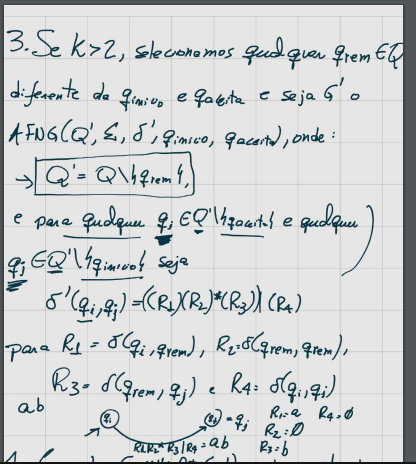 3. Se K>2, selecionamos qualquer qrem ∈ Q
diferente de qinicio e qaceita e seja G' o
AFNG(Q', Σ, δ', qinicio, qaceita), onde:
→ Q' = Q\{qrem},
e para qualquer qi ∈ Q'\{qaceita} e qualquer
qj ∈ Q'\{qinicio} seja
δ'(qi, qj) = ((R1)(R2)*(R3))|(R4)
para R1 = δ(qi, qrem), R2 = δ(qrem, qrem),
R3 = δ(qrem, qj) e R4 = δ(qi, qj)
ab
qi = qj R1 = a R4 = ∅
R2 = ∅
R1R2*R3|R4 = ab R3 = b